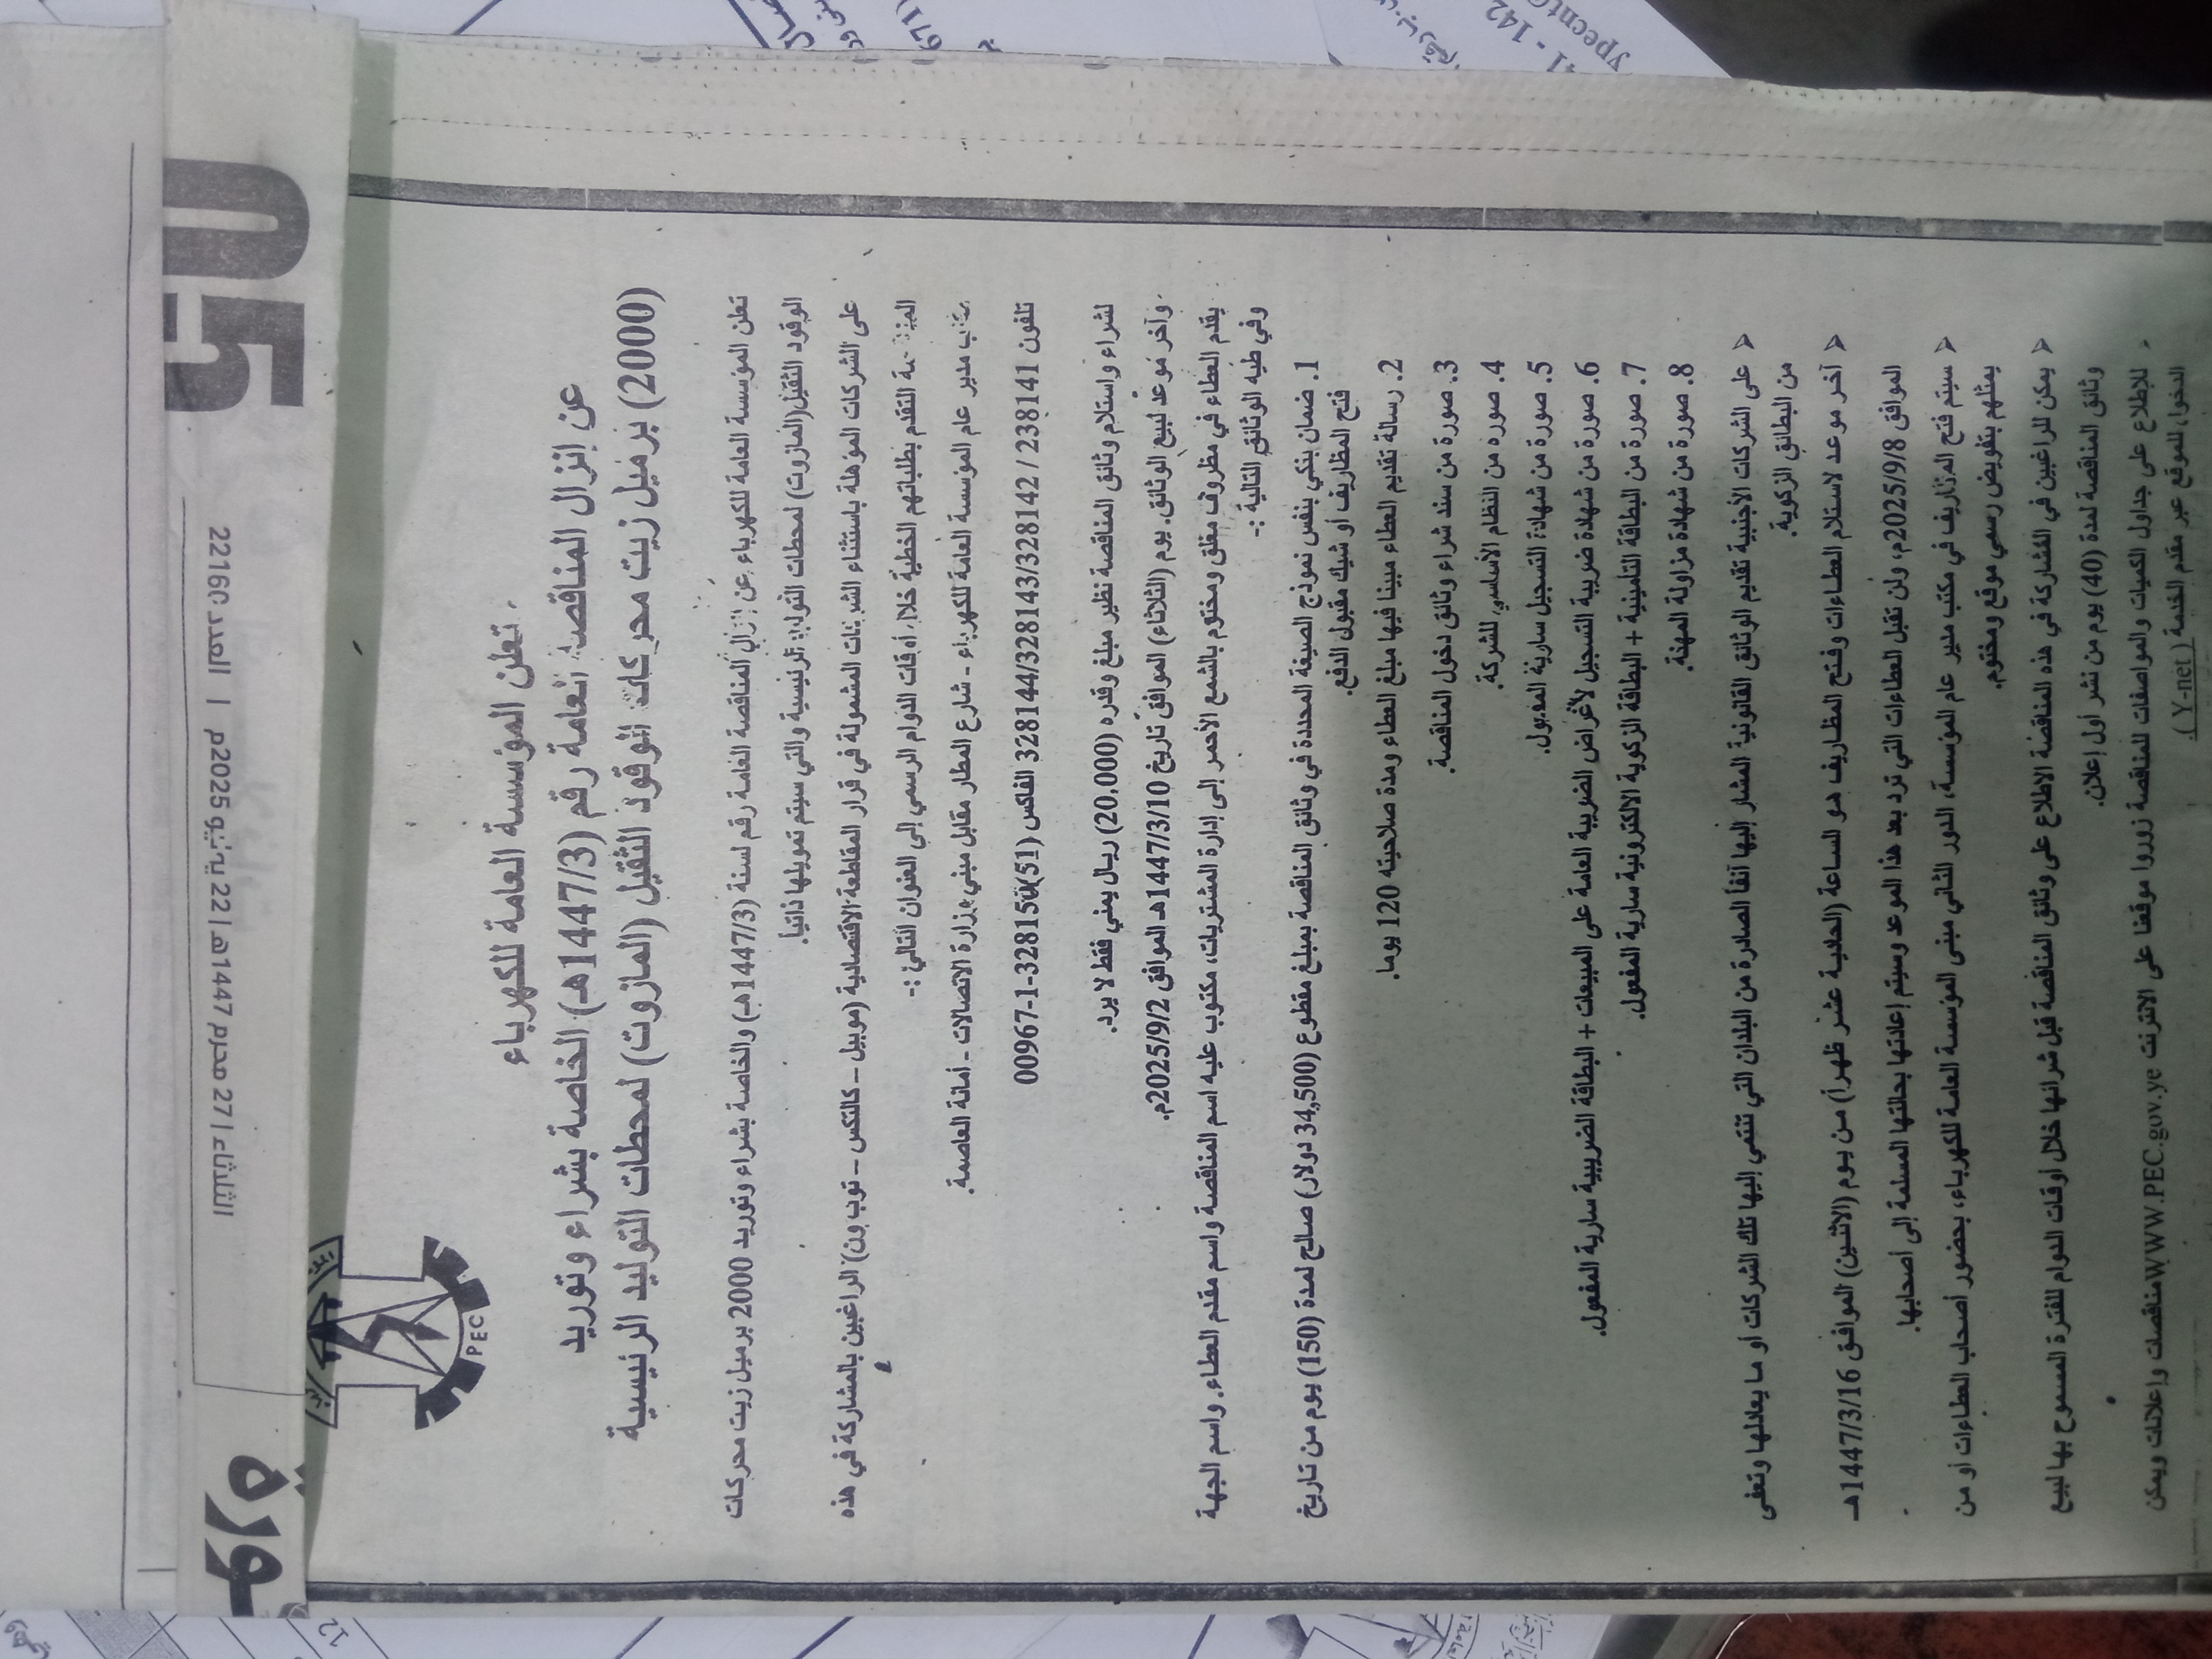 ـورة
الثلاثاء | 27 محرم 1447هـ | 22 يوليو 2025م | العدد 22160
05
PEC
تعلن المؤسسة العامة للكهرباء
عن إنزال المناقصة العامة رقم (1447/3هـ) الخاصة بشراء وتوريد
(2000) برميل زيت محركات الوقود الثقيل (المازوت) لمحطات التوليد الرئيسية
تعلن المؤسسة العامة للكهرباء عن إنزال المناقصة العامة رقم لسنة (1447/3هـ) والخاصة بشراء وتوريد 2000 برميل زيت محركات
الوقود الثقيل(المازوت) لمحطات التوليد الرئيسية والتي سيتم تمويلها ذاتياً.
على الشركات المؤهلة باستثناء الشركات المشمولة في قرار المقاطعة الاقتصادية (موبيل – كالتكس – توب ون) الراغبين بالمشاركة في هذه
المناقصة التقدم بطلباتهم الخطية خلال أوقات الدوام الرسمي إلى العنوان التالي:-
مكتب مدير عام المؤسسة العامة للكهرباء - شارع المطار مقابل مبنى وزارة الاتصالات - أمانة العاصمة.
تلفون 238141 / 328142/328143/328144 الفاكس (51)328150-1-00967
لشراء واستلام وثائق المناقصة نظير مبلغ وقدره (20.000) ريال يمني فقط لا يرد.
وآخر موعد لبيع الوثائق. يوم (الثلاثاء) الموافق تاريخ 1447/3/10هـ الموافق 2025/9/2م.
يقدم العطاء في مظروف مغلق ومختوم بالشمع الأحمر إلى إدارة المشتريات، مكتوب عليه اسم المناقصة واسم مقدم العطاء. واسم الجهة
وفي طيه الوثائق التالية :-
1. ضمان بنكي بنفس نموذج الصيغة المحددة في وثائق المناقصة بمبلغ مقطوع (34,500 دولار) صالح لمدة (150) يوم من تاريخ
فتح المظاريف أو شيك مقبول الدفع.
2. رسالة تقديم العطاء مبينا فيها مبلغ العطاء ومدة صلاحيته 120 يوما.
3. صورة من سند شراء وثائق دخول المناقصة.
4. صوره من النظام الأساسي للشركة.
5. صورة من شهادة التسجيل سارية المفعول.
6. صورة من شهادة ضريبة التسجيل لأغراض الضريبة العامة على المبيعات + البطاقة الضريبية سارية المفعول.
7. صورة من البطاقة التأمينية + البطاقة الزكوية الالكترونية سارية المفعول.
8. صورة من شهادة مزاولة المهنة.
➢ على الشركات الأجنبية تقديم الوثائق القانونية المشار إليها آنفا الصادرة من البلدان التي تنتمي إليها تلك الشركات أو ما يعادلها وتعفى
من البطائق الزكوية.
➢ آخر موعد لاستلام العطاءات وفتح المظاريف هو الساعة (الحادية عشر ظهراً) من يوم (الاثنين) الموافق 1447/3/16هـ
الموافق 2025/9/8م، ولن تقبل العطاءات التي ترد بعد هذا الموعد وسيتم إعادتها بحالتها المسلمة إلى أصحابها.
➢ سيتم فتح المظاريف في مكتب مدير عام المؤسسة، الدور الثاني مبنى المؤسسة العامة للكهرباء، بحضور أصحاب العطاءات أو من
يمثلهم بتفويض رسمي موقع ومختوم.
➢ يمكن للراغبين في المشاركة في هذه المناقصة الاطلاع على وثائق المناقصة قبل شرائها خلال أوقات الدوام للفترة المسموح بها لبيع
وثائق المناقصة لمدة (40) يوم من نشر أول إعلان.
للإطلاع على جداول الكميات والمواصفات للمناقصة زوروا موقعنا على الانترنت WWW.PEC.gov.ye مناقصات وإعلانات ويمكن
الدخول للموقع عبر مقدم الخدمة ( Y-net ).